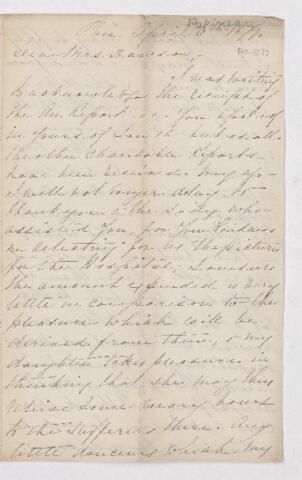 Papineau
April 6th 1877.
Dear Mrs Dawson,
I was waiting
to acknowledge the receipt of
the An. Report &c. You speak of
in yours of and as all
the other Charitable Reports
have been received
I will not longer delay to
thank you & the Lady who
assisted You, for Your Kindness
in selecting for us the pictures
for the Hospital; I am sure
the amount expended is very
little in comparison to the
pleasure which will be
derived from them, & my
daughter takes pleasure in
thinking that she may thus
relieve some weary hours
to the sufferers there. Any
little douceurs which my